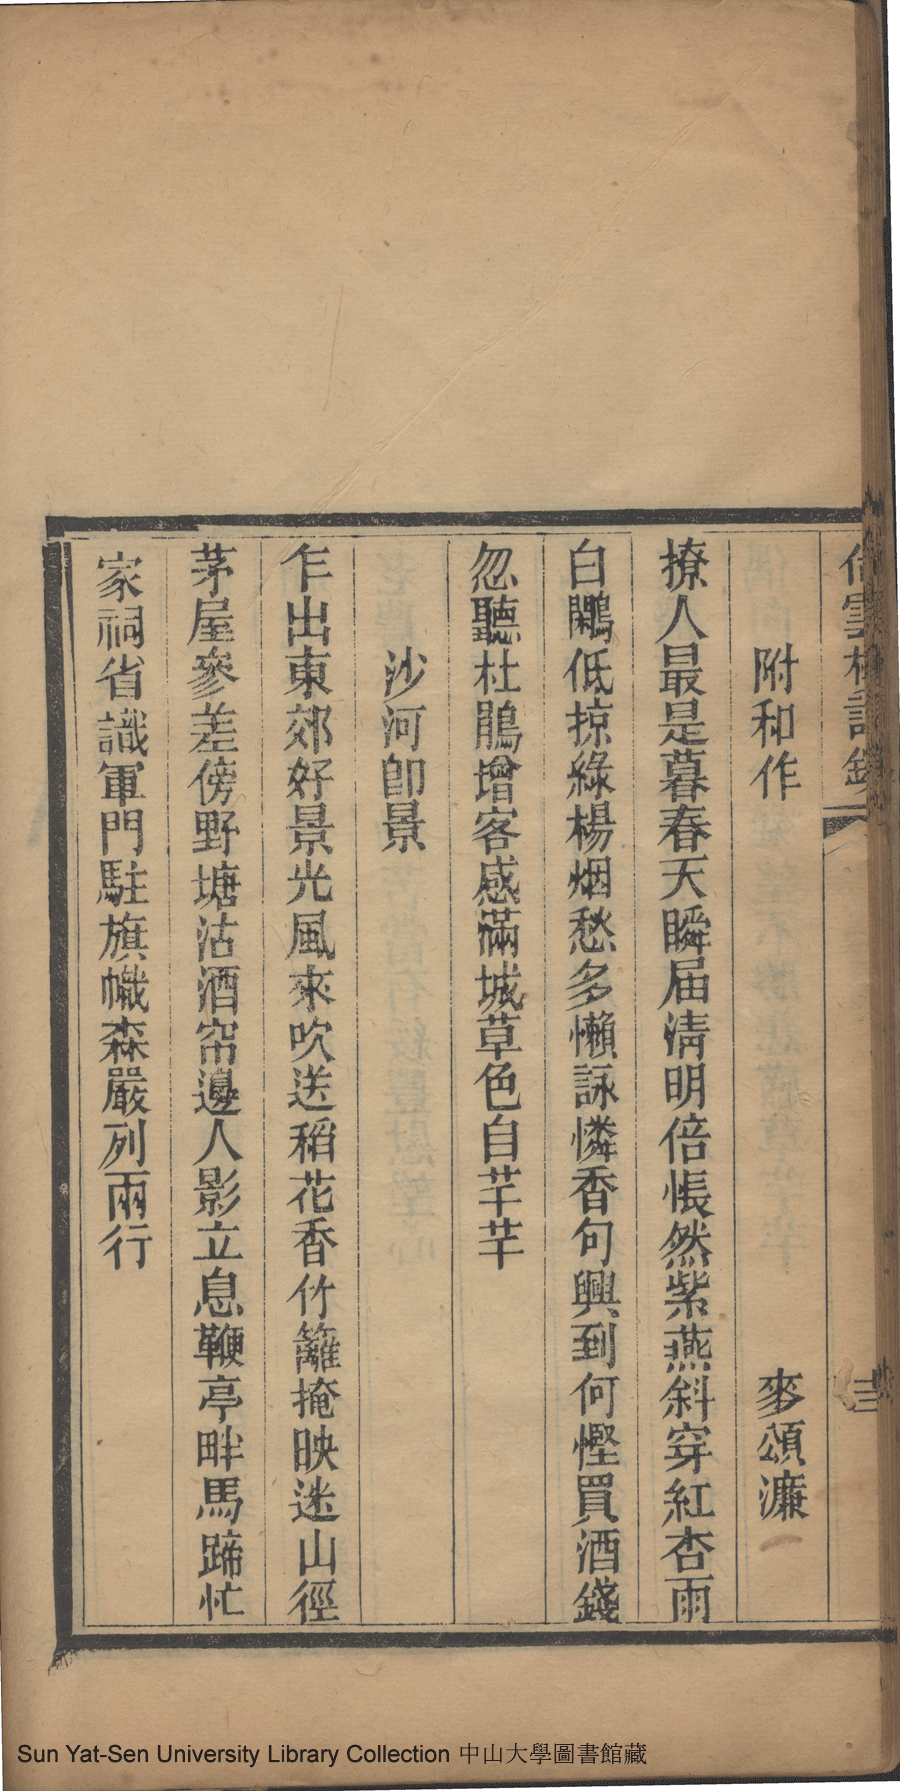 附和作　麥頌濂
撩人最是暮春天瞬届淸明倍悵然紫燕斜穿紅杏雨
白鷴低掠綠楊烟愁多懶詠憐香句興到何慳買酒錢
忽聽杜鵑增客感滿城草色自芊芊
沙河卽景
乍出東郊好景光風來吹送稻花香竹籬掩映迷山徑
茅屋參差傍野塘沽酒帘邊人影立息鞭亭畔馬蹄忙
家祠省識軍門駐旗幟森嚴列兩行
Sun Yat-Sen University Library Collection 中山大學圖書館藏